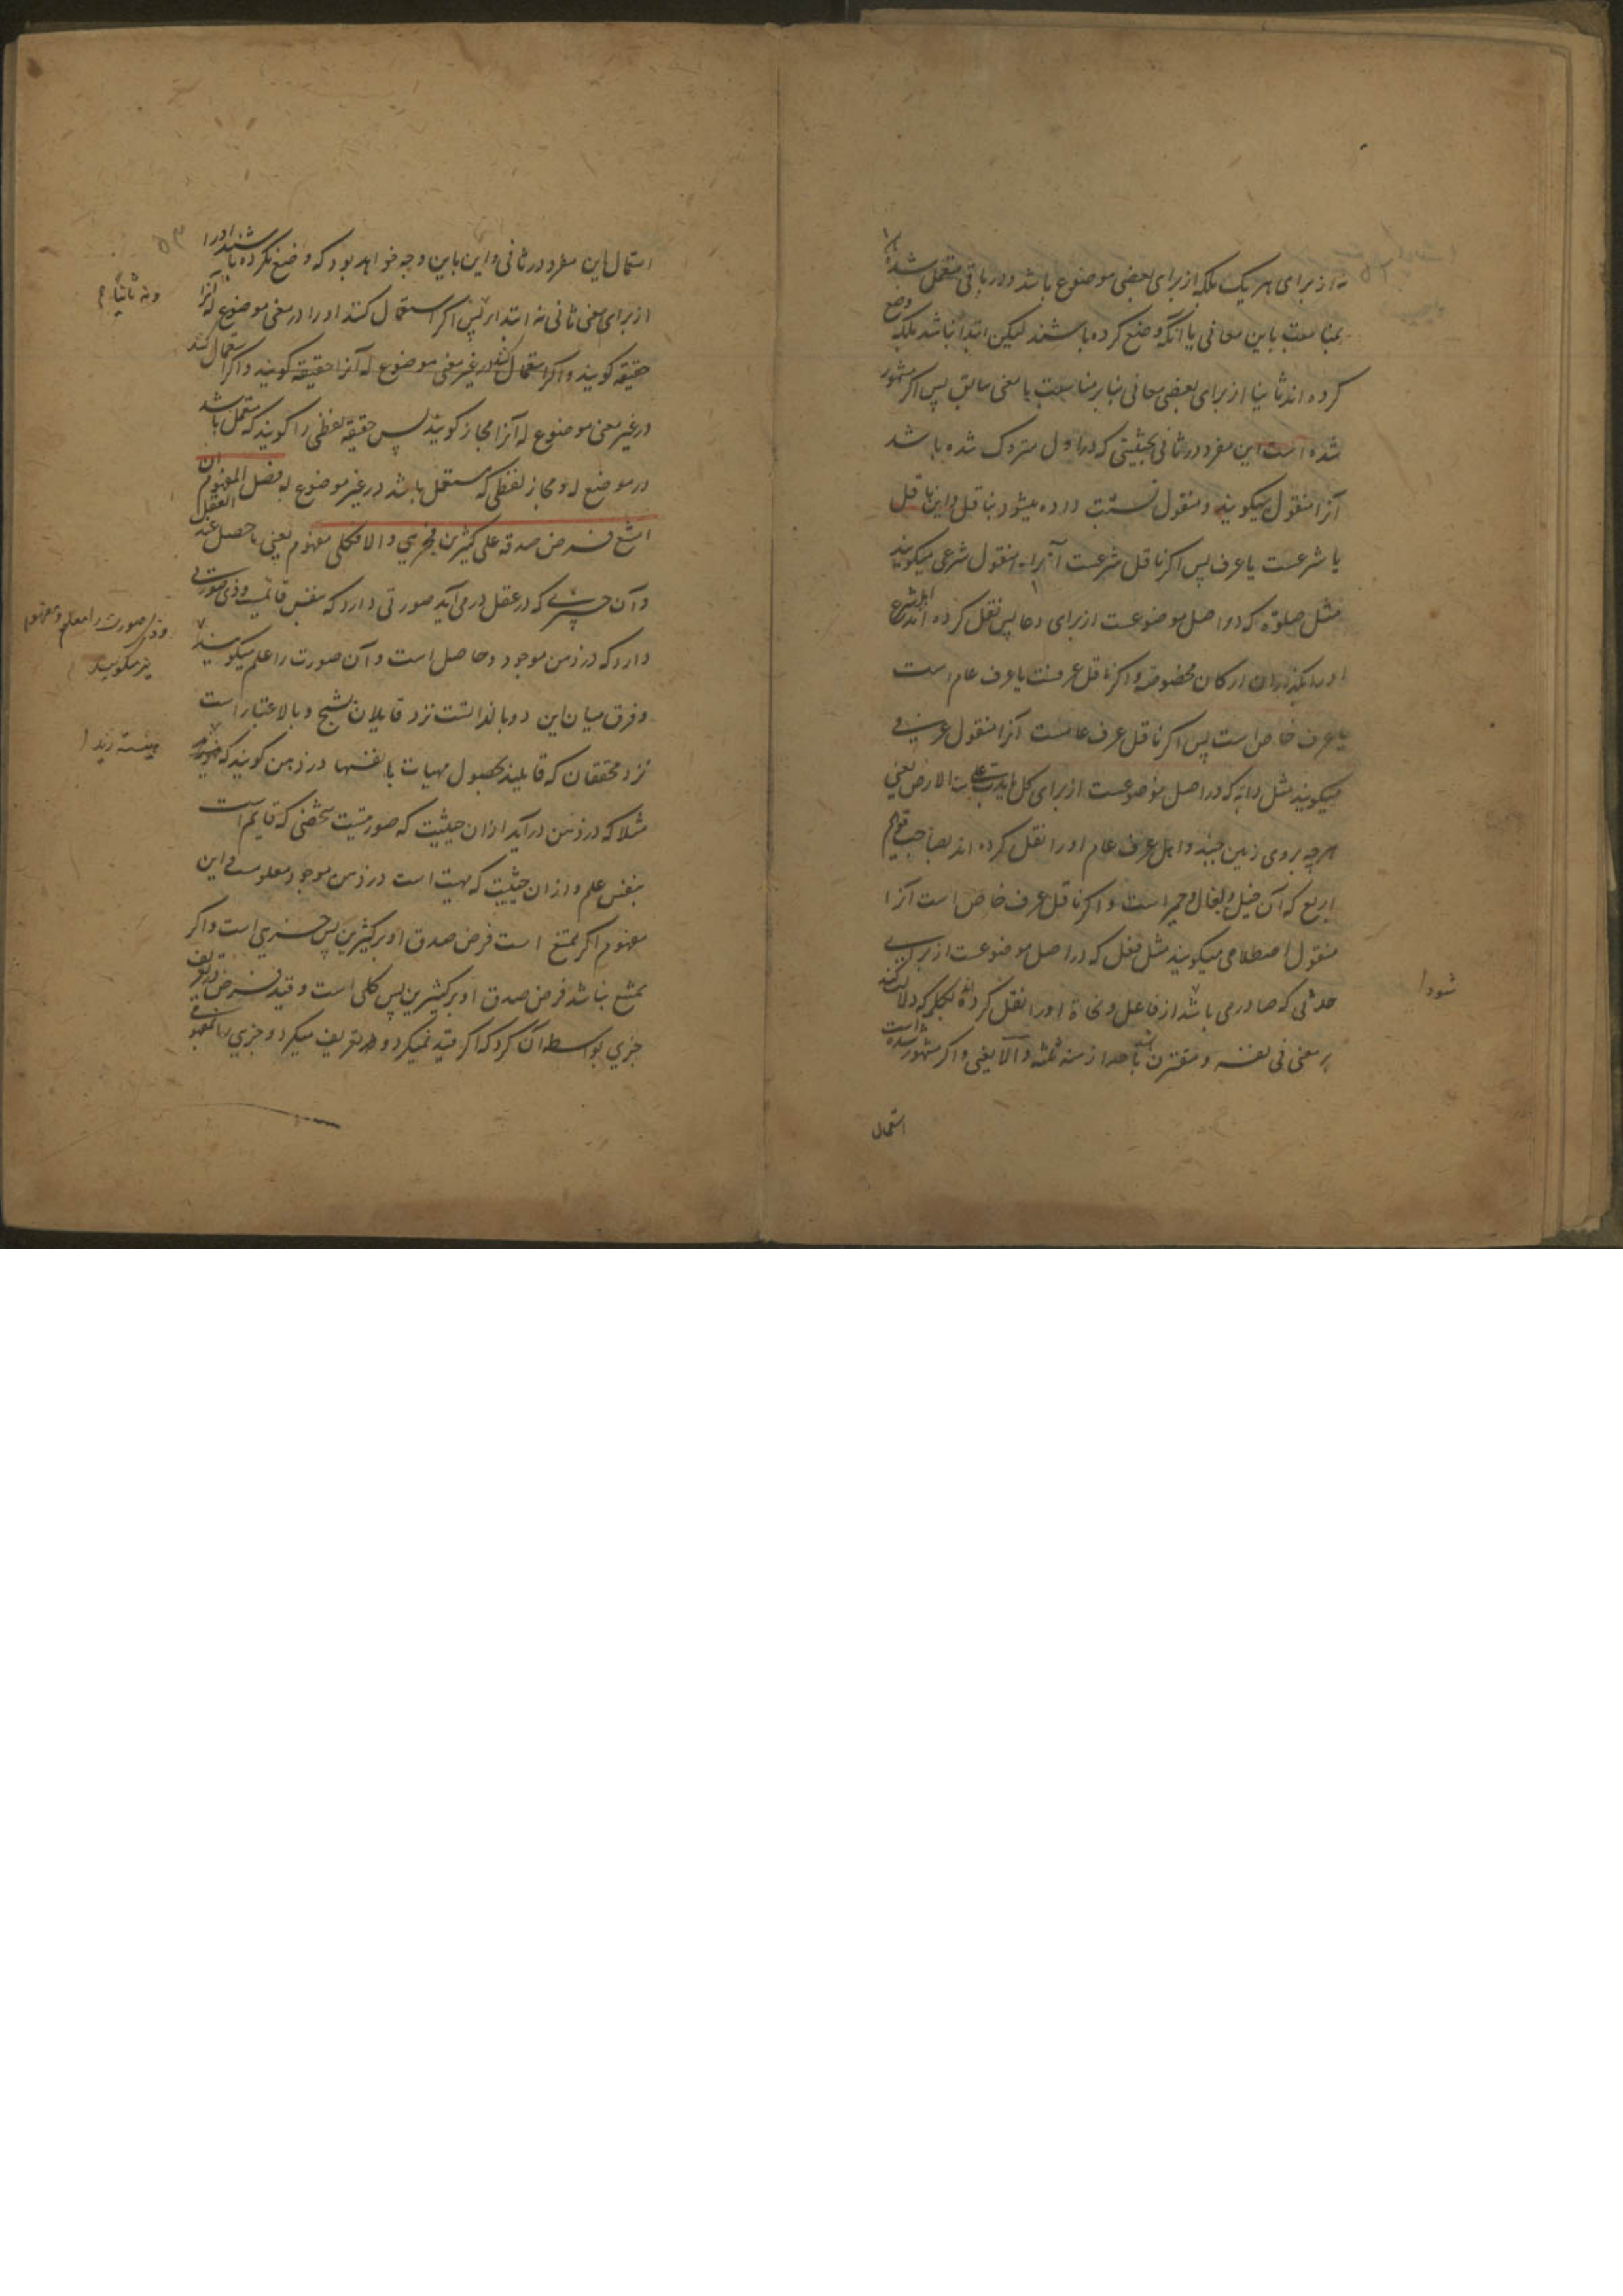 نه از برای هر یک بلکه از برای بعضی موضوع باشد و در باقی مستعمل شده
بمناسبت باین معانی یا آنکه وضع کرده باشند لیکن ابتدا نباشد بلکه وضع
کرده اند ثانیا از برای بعضی معانی بنابر مناسبت با معنی سابق پس اکر مشهور
شده است این مفرد در ثانی بحیثیتی که در اول متروک شده باشد
آنرا منقول میکویند و منقول نسبت داده میشود بناقل و این ناقل
یا شرعست یا عرف پس اکر ناقل شرعست آنرا منقول شرعی میکویند
مثل صلوة که در اصل موضوعست از برای دعا پس نقل کرده اند اهل شرع
او را ارکان مخصوصه و اکر ناقل عرفست یا عرف عام است
یا عرف خاص است پس اکر ناقل عرف عامست آنرا منقول عرفی
میکویند مثل دابه که در اصل موضوعست از برای کل ما یدب علی الارض یعنی
هر چه بروی زمین جنبد و اهل عرف عام او را نقل کرده اند بصاحب قوایم
اربع که آن خیل و بغال و حمیر است و اکر ناقل عرف خاص است آنرا
منقول اصطلاحی میکویند مثل فعل که در اصل موضوعست از برای
حدثی که صادر می باشد از فاعل و نحاة او را نقل کرده اند بکلمه که دلالت کند
بر معنی فی نفسه و مقترن باحد ازمنه ثلثه و الا یعنی و اکر مشهور شده است
شود
استعمال
استعمال این مفرد در ثانی و این باین وجه خواهد بود که وضع نکرده باشند او را
از برای معنی ثانی نه ابتدا پس اکر استعمال کنند او را در معنی موضوع له آنرا
ونه ثانیا
حقیقه کویند و اکر استعمال کنند در غیر معنی موضوع له آنرا حقیقه کویند و اکر استعمال کنند
در غیر معنی موضوع له آنرا مجاز کویند پس حقیقه لفظی را کویند که مستعمل باشد
در موضوع له و مجاز لفظی که مستعمل باشد در غیر موضوع له فصل المفهوم ان
امتنع فرض صدقه علی کثیرین فجزیی والا فکلی مفهوم یعنی ما حصل عند العقل
و آن چیزی که در عقل در می آید صورتی دارد که بنفس قائمست و ذی صورتی
دارد که در ذهن موجود و حاصل است و آن صورت را علم میکویند
وذی صورت را معلوم و مفهوم
نیز میکویند
و فرق میان این دو بالذاتست نزد قایلان بشبح و بالاعتبار است
نزد محققان که قایلند بحصول مهیات بانفسها در ذهن کویند که
مثلا که در ذهن درآید از ان حیثیت که صورتیست شخصی که قایم است
بنفس علم و از ان حیثیت که مهیت است در ذهن موجود معلومست و این
مفهوم اکر ممتنع است فرض صدق او بر کثیرین پس جزیی است و اکر
ممتنع نباشد فرض صدق او بر کثیرین پس کلی است و قید فرض در تعریف
جزیی بواسطه آن کرد که اکر قید نمیکرد و در تعریف میکرد و جزیی را